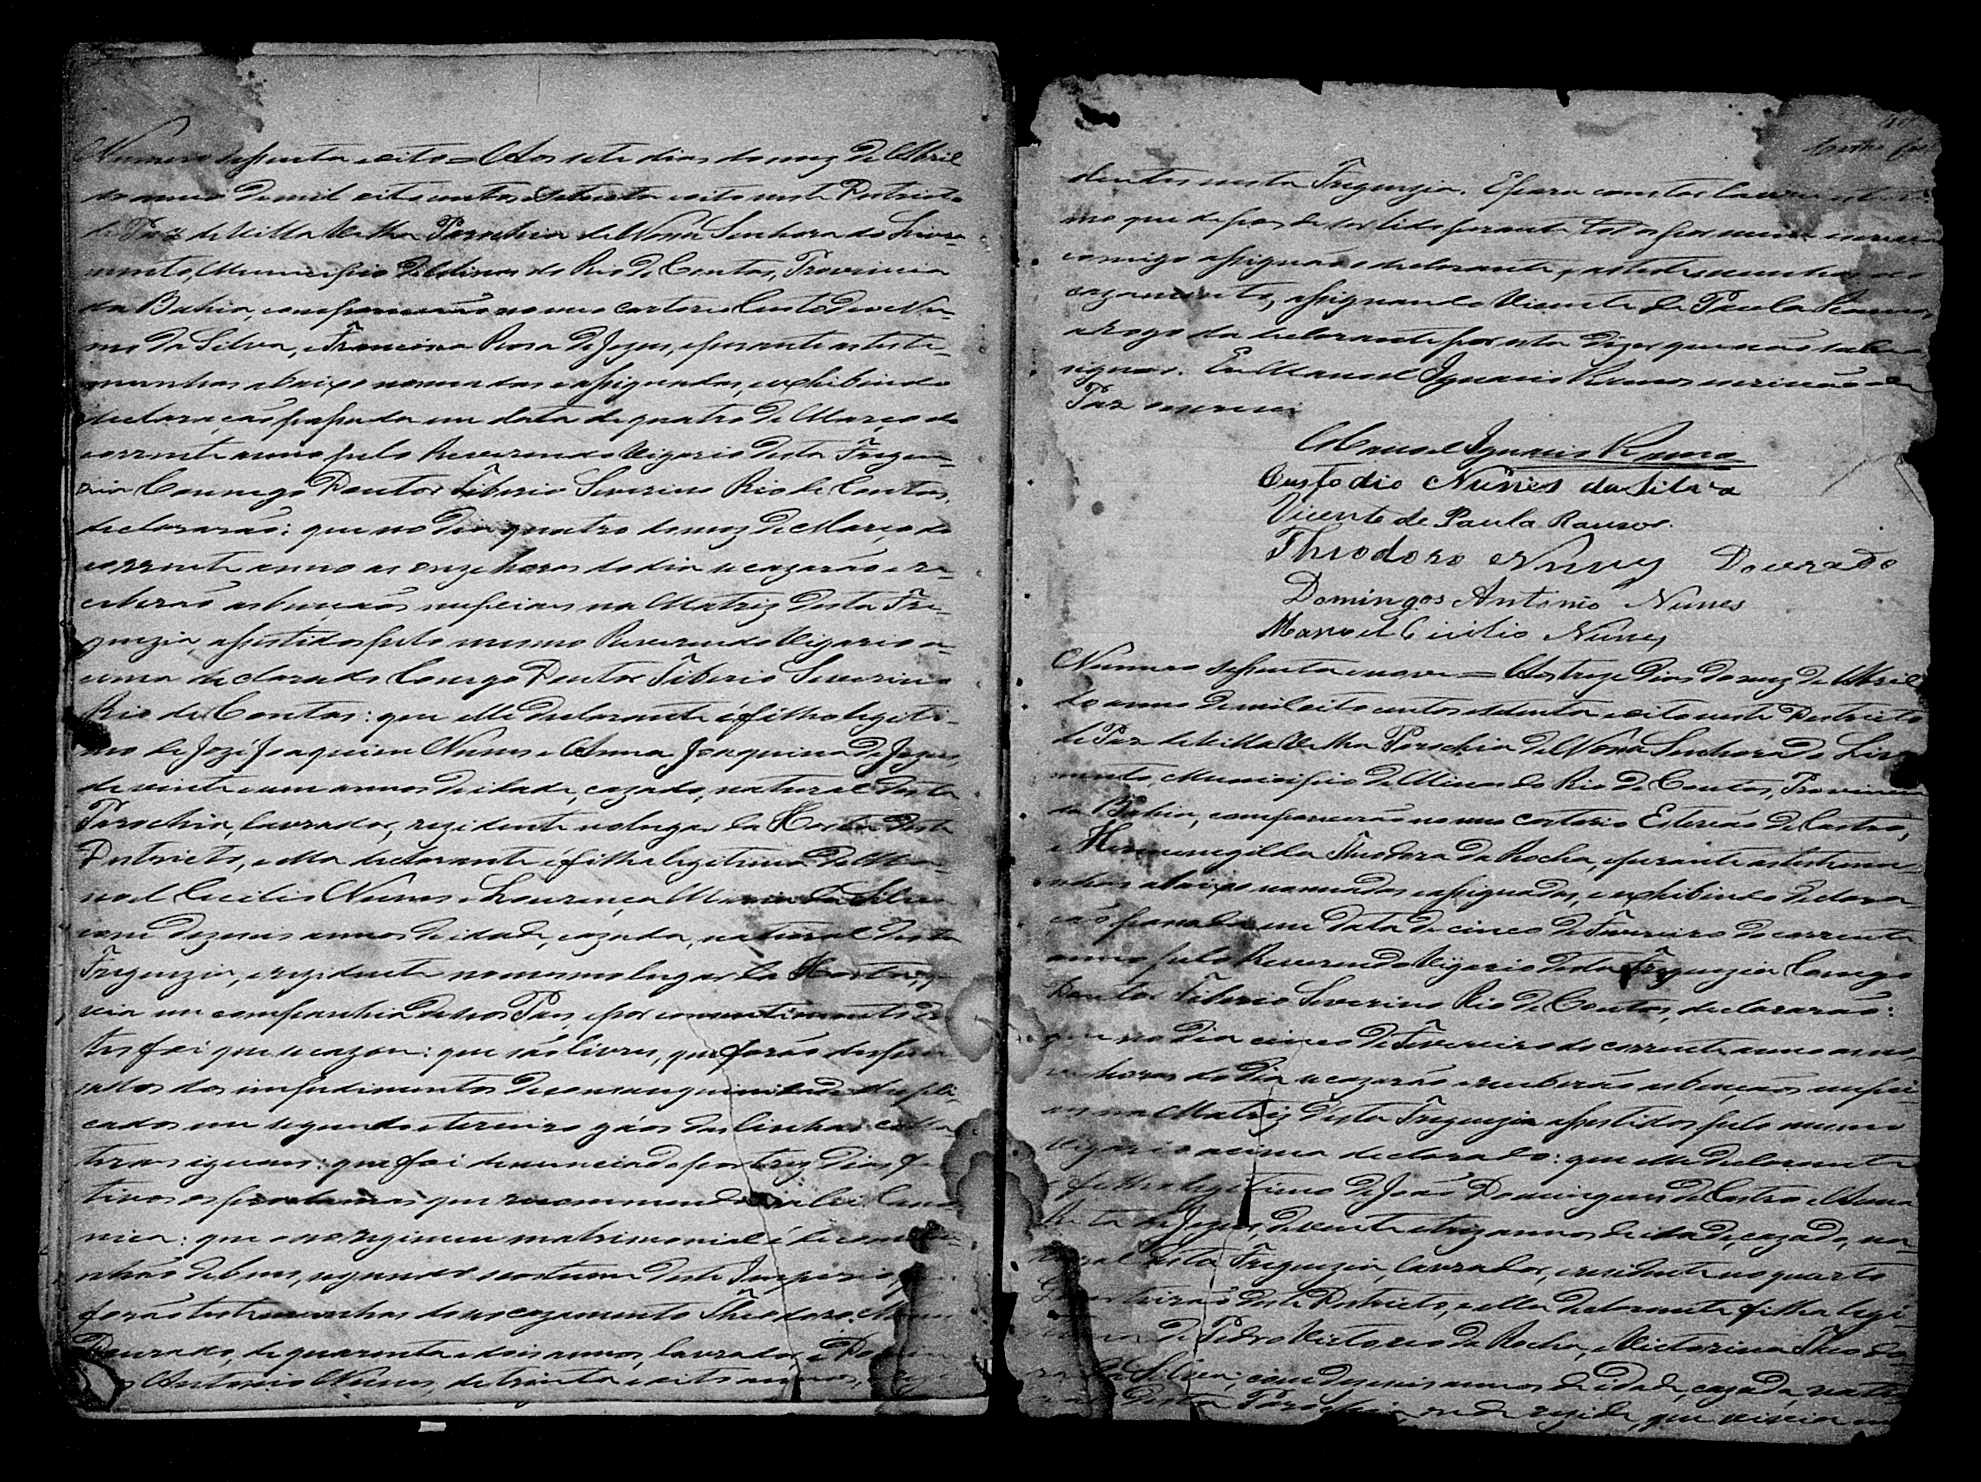 Numero sessenta e oito = Aos sete dias do mez de Abril
do anno de mil oito centos e setenta e oito neste Districto
de Paz de Villa Velha Parochia de Nossa Senhora do Livra-
mento, Municipio de Minas do Rio de Contas, Provincia
da Bahia, comparecerão no meu cartorio Custodio Nu-
nes da Silva, e Francisca Rosa de Jezus, e perante as teste-
munhas abaixo nomeadas e assignadas, exhibindo
declaração passada em data de quatro de Março do
corrente anno pelo Reverendo Vigario desta Fregue-
zia Conego Doutor Tiberio Severino Rio de Contas,
declararão: que no dia quatro do mez de Março do
corrente anno as onze horas do dia se cazarão e re-
ceberão as bençãos nupciaes na Matriz desta Fre-
guezia, assistidos pelo mesmo Reverendo Vigario a-
cima declarado Conego Doutor Tiberio Severino
Rio de Contas: que elle declarante é filho legiti-
mo de Jozé Joaquim Nunes e Anna Joaquina de Jezus,
de vinte e um annos de idade, cazado, natural desta
Parochia, lavrador, rezidente no lugar da Horta deste
Districto, e ella declarante é filha legitima de Ma-
noel Cecilio Nunes e Lourença Maria da Silva
com dezeseis annos de idade, cazada, natural desta
Freguezia, e rezidente no mesmo lugar da Horta, vi-
via em companhia de seos Pais, e por consentimento des-
tes foi que se cazou: que são livres, que forão dispen-
sados dos impedimentos de consanguinidade dupli-
cados em segundo e terceiro gráos das linhas colla-
teraes iguaes: que foi denunciado por trez dias fes-
tivos os proclamas que recommenda a lei Cano-
nica: que o seo regimen matrimonial é de commu-
nhão de bens, segundo o costume deste Imperio: que
forão testemunhas do seo cazamento Theodoro Nunes
Dourado, de quarenta e dois annos, lavrador, e Domin-
gos Antonio Nunes, de trinta e oito annos,
dentes nesta Freguezia. E para constar lavrei este ter-
mo que depois de ser lido perante todos por mim escrivão
comigo assignão o declarante, e as testemunhas do
cazamento, assignando Vicente de Paula Ramos,
a rogo da declarante por esta dizer que não sabe as-
signar. Eu Manoel Ignacio Ramos escrivão de
Paz escrevi.
Manoel Ignacio Ramos
Custodio Nunes da Silva
Vicente de Paula Ramos.
Theodoro Nunes Dourado
Domingos Antonio Nunes
Manoel Cicilio Nunes
Numero sessenta e nove = Aos treze dias do mez de Abril
do anno de mil oito centos e setenta e oito neste Districto
de Paz de Villa Velha Parochia de Nossa Senhora do Livra-
mento, Municipio de Minas do Rio de Contas, Provincia
da Bahia, comparecerão no meu cartorio Estevão de Castro,
e Hermenegilda Theodora da Rocha, e perante as testemu-
nhas abaixo nomeadas e assignadas, e exhibindo declara-
ção passada em data de cinco de Fevereiro do corrente
anno pelo Reverendo Vigario desta Freguezia Conego
Doutor Tiberio Severino Rio de Contas, declararão:
que no dia cinco de Fevereiro do corrente anno as no-
ve horas do dia se cazarão e receberão as bençãos nupci-
aes na Matriz desta Freguezia assistidos pelo mesmo
Vigario acima declarado: que elle declarante
é filho legitimo de João Domingues de Castro e Anna
Rita de Jezus, de vinte e trez annos de idade, cazado, na-
tural desta Freguezia, lavrador, e rezidente no quarto
Quarteirão deste Districto, e ella declarante filha legi-
tima de Pedro Victorio da Rocha, e Victorina Theodo-
ra da Silva, com dezeseis annos de idade, cazada, natu-
ral desta Parochia, onde rezide, que vivia em